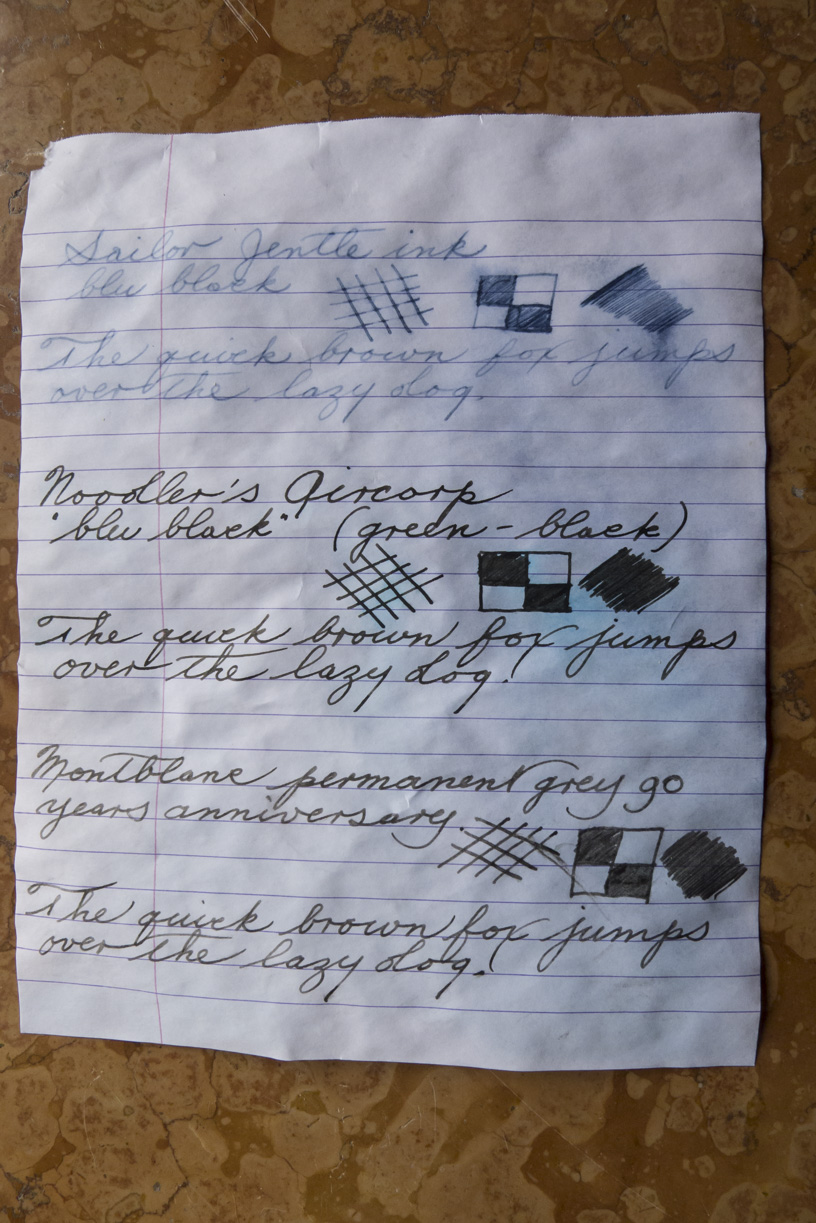 Sailor Jentle ink
blu black
The quick brown fox jumps
over the lazy dog.
Noodler's Aircorp
"blu black" (green-black)
The quick brown fox jumps
over the lazy dog.
Montblanc permanent grey 90
years anniversary.
The quick brown fox jumps
over the lazy dog.